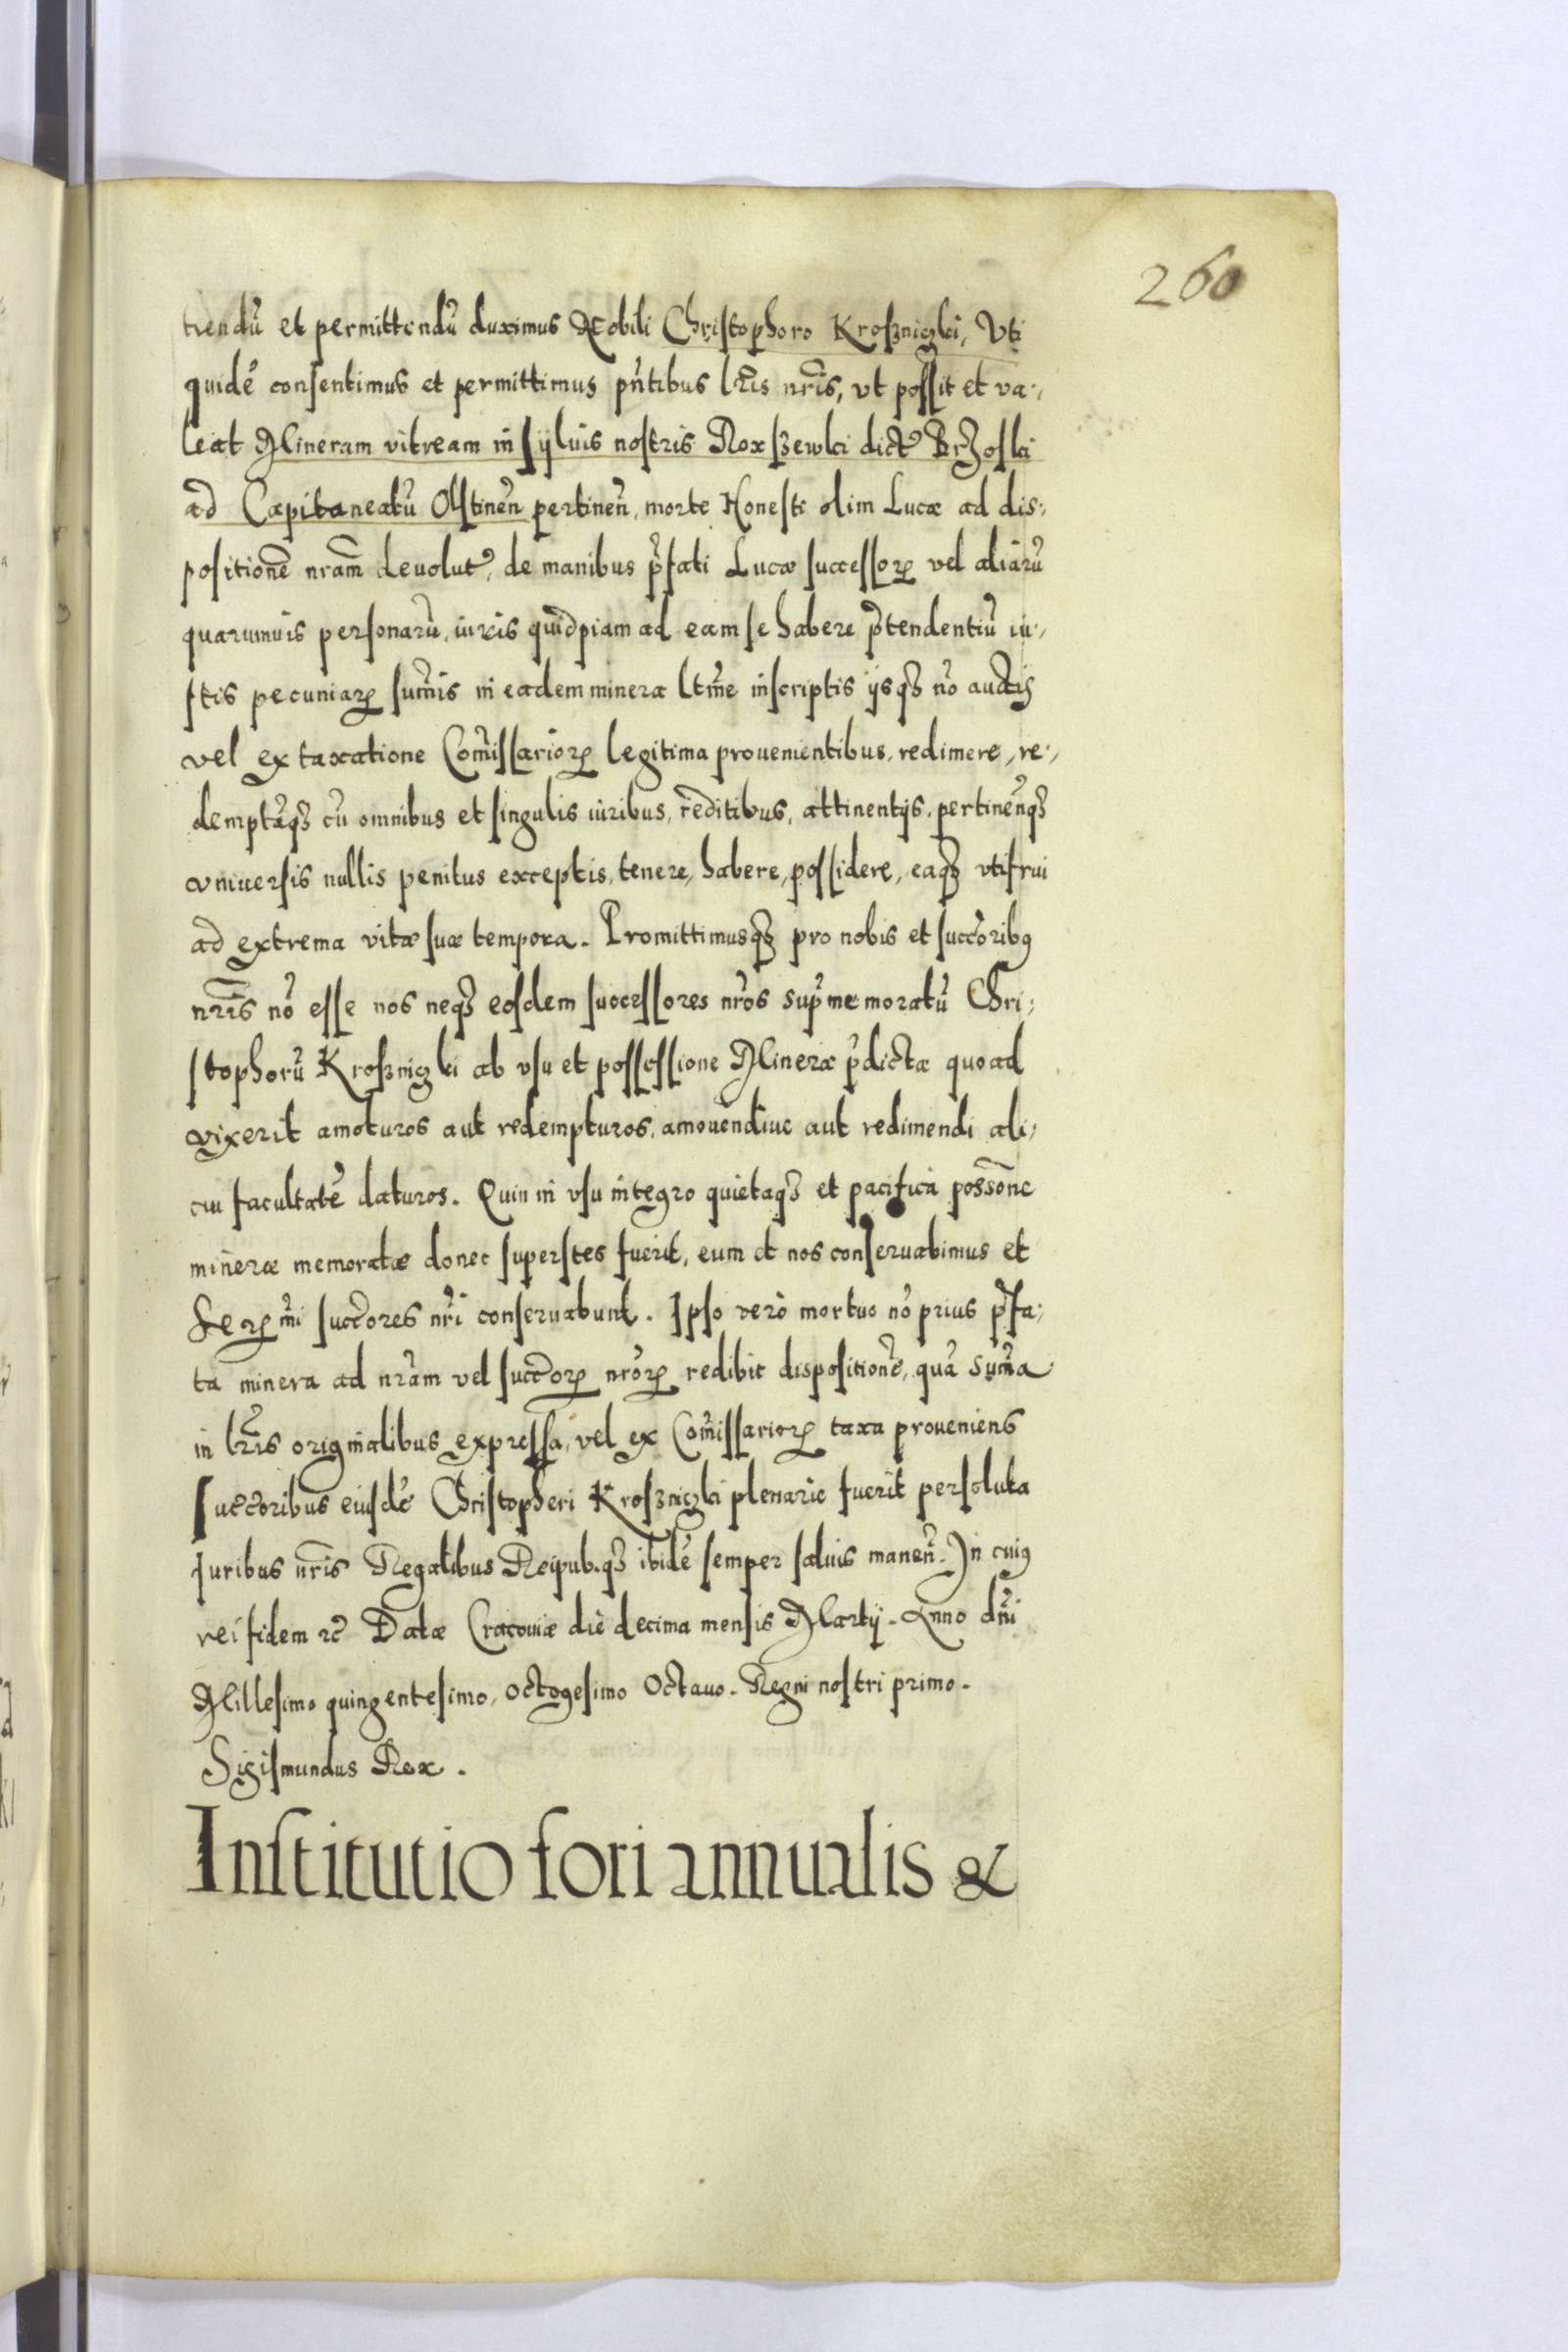 260
tiendū et permittendū duximus Nobili Christophoro Kroszniczki, Vti
quidē consentimus et permittimus pn̄tibus lr̄is nr̄is, vt possit et va-
leat Mineram vitream in syluis nostris Roxszewki dict' Brzoski
ad Capitaneatū Olstinen̄ pertinen̄, morte Honesti olim Lucæ ad dis-
positionē nr̄am deuolut', de manibus p̄fati Lucæ successorꝝ vel aliarū
quarumuis personarū, iuris quidpiam ad eam se habere p̄tendentiū iu-
stis pecuniarꝝ sum̄is in eadem minera ltm̄e inscriptis ijsqꝫ nō auctis
vel ex taxatione Com̄issariorꝝ legitima prouenientibus, redimere, re-
demptāqꝫ cū omnibus et singulis iuribus, reditibus, attinentijs, pertinen̄qꝫ
vniuersis nullis penitus exceptis, tenere, habere, possidere, eaqꝫ vtifrui
ad extrema vitæ suæ tempora. Promittimusqꝫ pro nobis et succ̄oribꝰ
nr̄is nō esse nos neqꝫ eosdem successores nr̄os sup̄memoratū Chri-
stophorū Kroszniczki ab vsu et possessione Mineræ p̄dictæ quoad
vixerit amoturos aut redempturos, amouendiue aut redimendi ali-
cui facultatē daturos. Quin in vsu integro quietaqꝫ et pacifica possōne
mineræ memoratæ donec superstes fuerit, eum et nos conseruabimus et
Serꝝmi succ̄ores nr̄i conseruabunt. Ipso verò mortuo nō prius p̄fa-
ta minera ad nr̄am vel succ̄orꝝ nr̄orꝝ redibit dispositionē, quā sum̄a
in lr̄is originalibus expressa, vel ex Com̄issariorꝝ taxa proueniens
succ̄oribus eiusdē Christopheri Kroszniczki plenarie fuerit persoluta
Iuribus nr̄is Regalibus Reipub.qꝫ ibidē semper saluis manen̄. In cuiꝰ
rei fidem ꝛc̄ Datæ Cracouiæ die decima mensis Martij. Anno dn̄i
Millesimo quingentesimo, octogesimo Octauo. Regni nostri primo.
Sigismundus Rex.
Institutio fori annualis &